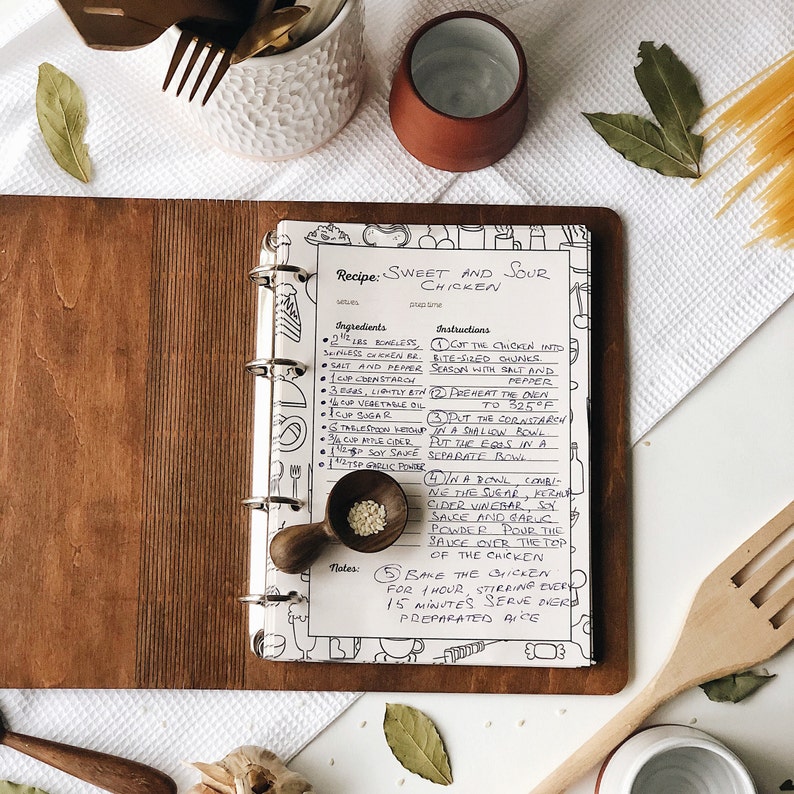 Recipe: SWEET AND SOUR
CHICKEN
serves prep time
Ingredients
• 2 1/2 LBS BONELESS,
SKINLESS CHICKEN BR.
• SALT AND PEPPER
• 1 CUP CORNSTARCH
• 3 EGGS, LIGHTLY BTN
• 1/4 CUP VEGETABLE OIL
• 1 CUP SUGAR
• 6 TABLESPOON KETCHUP
• 3/4 CUP APPLE CIDER
• 1 1/2 TSP SOY SAUCE
• 1 1/2 TSP GARLIC POWDER
Instructions
① CUT THE CHICKEN INTO
BITE-SIZED CHUNKS.
SEASON WITH SALT AND
PEPPER
② PREHEAT THE OVEN
TO 325°F
③ PUT THE CORNSTARCH
IN A SHALLOW BOWL
PUT THE EGGS IN A
SEPARATE BOWL
④ IN A BOWL, COMBI-
NE THE SUGAR, KERHUP
CIDER VINEGAR, SOY
SAUCE AND GARLIC
POWDER POUR THE
SAUCE OVER THE TOP
OF THE CHICKEN
Notes:
⑤ BAKE THE CHICKEN
FOR 1 HOUR, STIRRING EVERY
15 MINUTES SERVE OVER
PREPARATED RICE